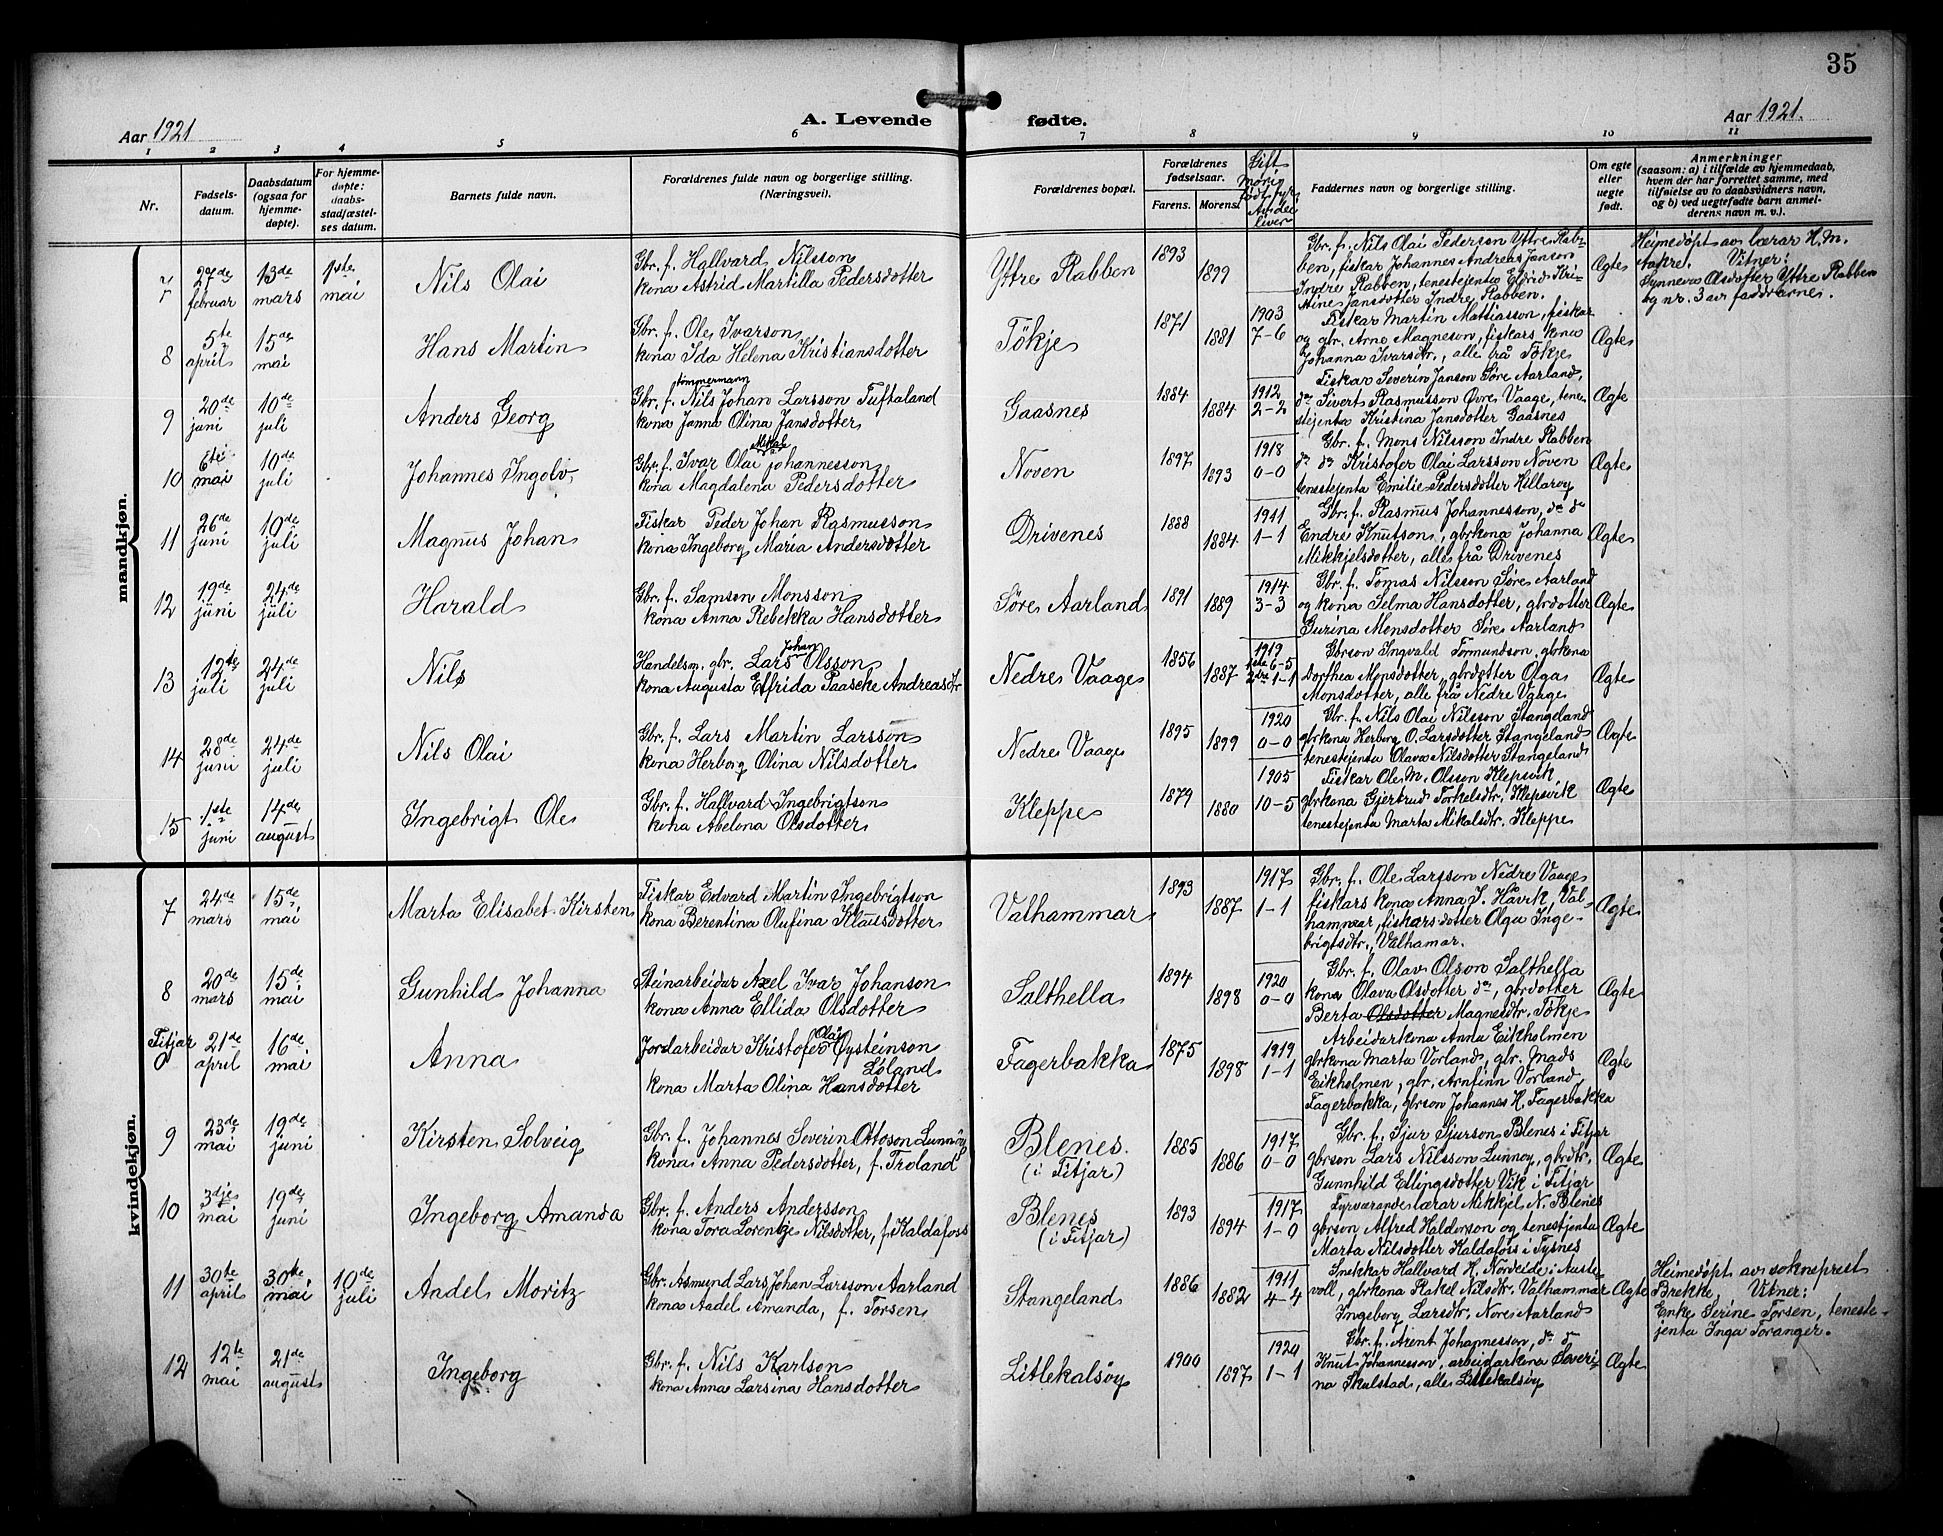 35
Aar 1921
A. Levende fødte.
Aar 1921.
1 2 3 4 5 6 7 8 9 10 11
Nr.
Fødselsdatum.
Daabsdatum (ogsaa for hjemmedøpte).
For hjemmedøpte: daabsstadfæstelses datum.
Barnets fulde navn.
Forældrenes fulde navn og borgerlige stilling.
(Næringsvei).
Forældrenes bopæl.
Forældrenes fødselsaar.
Farens. Morens.
Gift
Faddernes navn og borgerlige stilling.
Om egte eller uegte født.
Anmerkninger
(saasom: a) i tilfælde av hjemmedaab,
hvem der har forrettet samme, med
tilføielse av to daabsvidners navn,
og b) ved uegtefødte barn anmelderens navn m. v.).
mandkjøn.
7
27de februar
13de mars
1ste mai
Nils Olai
Gbr. f. Hallvard Nilsson
kona Astrid Martilla Pedersdotter
Yttre Rabben
1893
1899
Gbr. f. Nils Olai Pederson Yttre Rabben, fiskar Johannes Andreas Janson
Indre Rabben, tenestejenta Elfrid Kristine Jansdotter Indre Rabben.
Ægte
Heimedöpt av lærar H. M.
Aakre. Vitner:
Synneva Olsdotter Yttre Rabben
og nr. 3 av faddrarne.
8
5te april
15de mai
Hans Martin
Gbr. f. Ole Ivarson
kona Ida Helena Kristiansdotter
Tökje
1871
1881
1903
7-6
Fiskar Martin Mattiasson, fiskar
og gbr. Arne Magneson, fiskars kona
Johanna Ivarsdtr., alle frå Tökje
Ægte
9
20de juni
10de juli
Anders Georg
tömmermann
Gbr. f. Nils Johan Larsson Tuftaland
kona Janna Olina Jansdotter
Gaasnes
1884
1884
1912
2-2
Fiskar Severin Janson Söre Aarland,
do Sivert Rasmusson Övre Vaage, tenestejenta Kristina Jansdotter Gaasnes
Ægte
10
6te mai
10de juli
Johannes Ingolv
Mikal
Gbr. f. Ivar Olai Johannesson
kona Magdalena Pedersdotter
Noven
1897
1893
1918
0-0
Gbr. f. Mons Nilsson Indre Rabben
do do Kristofer Olai Larsson Noven
tenestejenta Emilie Pedersdotter Hillaröy
Ægte
11
26de juni
10de juli
Magnus Johan
Fiskar Peder Johan Rasmusson
kona Ingeborg Maria Andersdotter
Drivenes
1888
1884
1911
1-1
Gbr. f. Rasmus Johannesson, do do
Endre Knutson, gbrkona Johanna
Mikkjelsdotter, alle frå Drivenes
Ægte
12
19de juni
24de juli
Harald
Gbr. f. Samson Monsson
kona Anna Rebekka Hansdotter
Söre Aarland
1891
1889
1914
3-3
Gbr. f. Tomas Nilsson Söre Aarland
og kona Selma Hansdotter, gbrdotter
Gurina Monsdotter Söre Aarland
Ægte
13
12te juli
24de juli
Nils
Johan
Handelsm. gbr. Lars Olsson
kona Augusta Elfrida Paaske Andreasdtr
Nedre Vaage
1856
1887
1919
1ste 6-5
2dre 1-1
Gbrson Ingvald Tormundson, gbrkona
Dorthea Monsdotter, gbrdotter Olga
Monsdotter, alle frå Nedre Vaage
Ægte
14
28de juni
24de juli
Nils Olai
Gbr. f. Lars Martin Larsson
kona Herborg Olina Nilsdotter
Nedre Vaage
1895
1899
1920
0-0
Gbr. f. Nils Olai Nilsson Stangeland
gbrkona Herborg O. Larsdotter Stangeland
tenestejenta Olava Nilsdotter Stangeland
Ægte
15
1ste juni
14de august
Ingebrigt Ole
Gbr. f. Hallvard Ingebrigtson
kona Abelona Olsdotter
Kleppe
1879
1880
1905
10-5
Fiskar Ole M. Olsson Klepsvik
gbrkona Gjertrud Torkelsdtr. Klepsvik
tenestejenta Marta Mikalsdtr. Kleppe
Ægte
kvindekjøn.
7
24de mars
15de mai
Marta Elisabet Kirsten
Fiskar Edvard Martin Ingebrigtson
kona Berentina Olufina Klausdotter
Valhammar
1893
1887
1917
1-1
Gbr. f. Ole Larsson Nedre Vaage
fiskars kona Anna J. Håvik, Valhammar, fiskarsdotter Olga Ingebrigtsdtr., Valhamar.
Ægte
8
20de mars
15de mai
Gunhild Johanna
Steinarbeidar Axel Ivar Johanson
kona Anna Ellida Olsdotter
Salthella
1894
1898
1920
0-0
Gbr. f. Olav Olson Salthella
kona Olava Olsdotter do, gbrdotter
Berta Olsdotter Magnesdtr. Tökje
Ægte
Fitjar
0
21de april
16de mai
Anna
Olai
Jordarbeidar Kristofer Øysteinson
Löland
kona Marta Olina Hansdotter
Fagerbakka
1875
1898
1919
1-1
Arbeidarkona Anna Eikholmen
gbrkona Marta Vorland, gbr. Mads
Eikholmen, gbr. Arnfinn Vorland
Fagerbakka, gbrson Johannes H. Fagerbakka
Ægte
9
23de mai
19de juni
Kirsten Solveig
Gbr. f. Johannes Severin Ottoson Lunnöy
kona Anna Pedersdotter, f. Troland
Blenes.
(i Fitjar)
1885
1886
1917
0-0
Gbr. f. Sjur Sjurson Blenes i Fitjar
gbrson Lars Nilsson Lunnøy, gbrdtr.
Gunnhild Ellingsdotter Vik i Fitjar
Ægte
10
3dje mai
19de juni
Ingeborg Amanda
Gbr. f. Anders Andersson
kona Tora Lorentze Nilsdotter, f. Kaldafoss
Blenes
(i Fitjar)
1893
1894
1917
1-0
Fyrverande lærar Mikkjel N. Blenes
gbrson Alfred Halderson og tenestjenta
Marta Nilsdotter Kaldafoss i Tysnes
Ægte
11
30te april
30te mai
10de juli
Andel Moritz
Gbr. Asmund Lars Johan Larsson Aarland
kona Aadel Amanda, f. Torsen
Stangeland
1886
1882
1911
4-4
Snekkar Hallvard H. Nordeide i Austevoll, gbrkona Rakel Nilsdtr. Valhammar
Ingeborg Larsdtr. Nore Aarland
Ægte
Heimedöpt av sokneprest
Brekke. Vitner:
Enke Serine Torsen, tenestejenta Inga Toranger.
12
12te mai
21de august
Ingeborg
Gbr. f. Nils Karlson
kona Anna Larsina Hansdotter
Litlekalsöy
1900
1897
1920
1-1
Gbr. f. Arent Johannesson, do do
Knut Johannesson, arbeidarkona Severina Skulstad, alle Litlekalsöy
Ægte